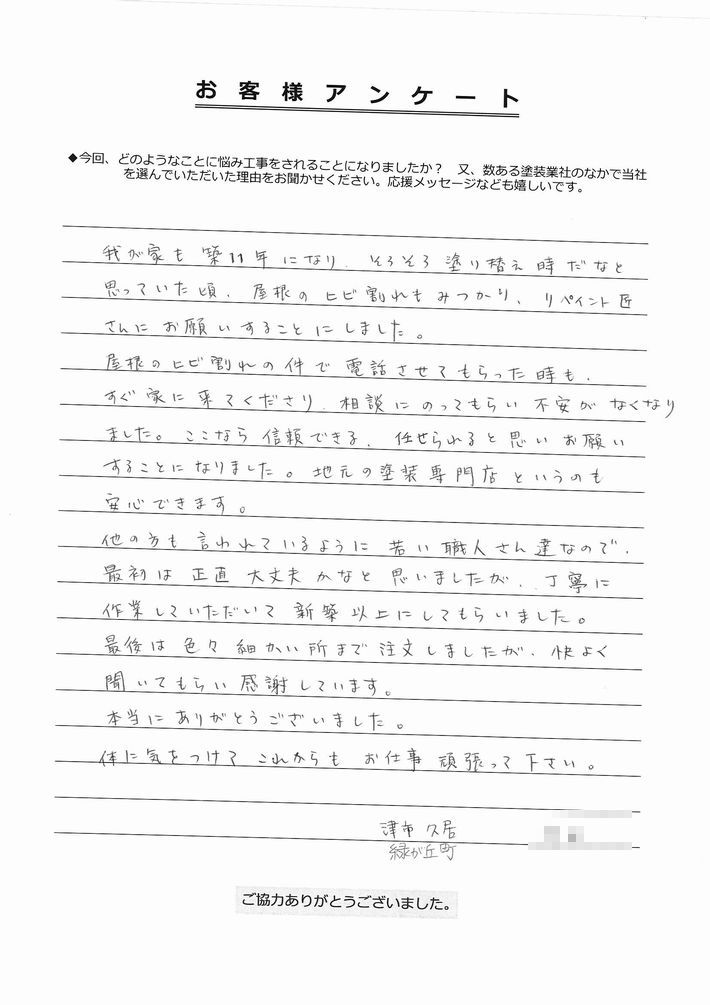 お客様アンケート
◆今回、どのようなことに悩み工事をされることになりましたか？　又、数ある塗装業社のなかで当社
を選んでいただいた理由をお聞かせください。応援メッセージなども嬉しいです。
我が家も築11年になり、そろそろ塗り替え時だなと
思っていた頃、屋根のヒビ割れもみつかり、リペイント匠
さんにお願いすることにしました。
屋根のヒビ割れの件で電話させてもらった時も、
すぐ家に来てくださり、相談にのってもらい不安がなくなり
ました。ここなら信頼できる、任せられると思いお願い
することになりました。地元の塗装専門店というのも
安心できます。
他の方も言われているように若い職人さん達なので、
最初は正直大丈夫かなと思いましたが、丁寧に
作業していただいて新築以上にしてもらいました。
最後は色々細かい所まで注文しましたが、快よく
聞いてもらい感謝しています。
本当にありがとうございました。
体に気をつけてこれからもお仕事頑張って下さい。
津市久居
緑が丘町
ご協力ありがとうございました。